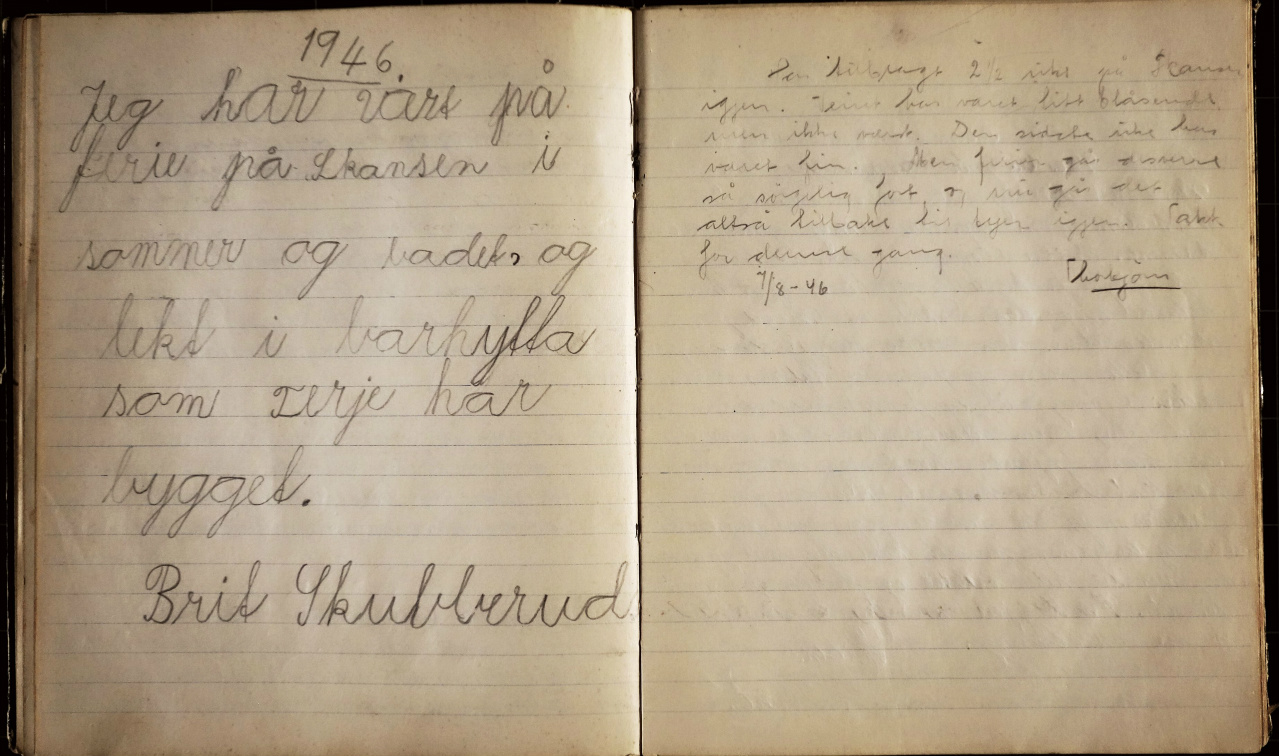 1946.
Jeg har vårt på
ferie på Skansen i
sommer og badet, og
lekt i barhytta
som Terje har
bygget.
Brit Skubberud.
Har tilbragt 2½ uke på Skansen
igjen. har været litt blåsende
men ikke værst. Den sidste uke har
været fin. Men ferien går desverre
så sørgelig fort, og nu går det
altså tilbake til byen igjen. Takk
for denne gang.
7/8-46 Thorbjørn